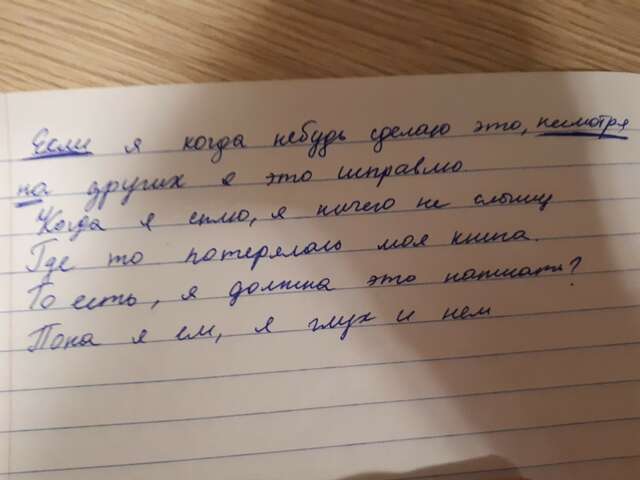 Если я когда небудь сделаю это, несмотря
на других я это исправлю.
Когда я сплю, я ничего не слышу
Где то потерялась моя книга.
То есть, я должна это написать?
Пока я ем, я глух и нем